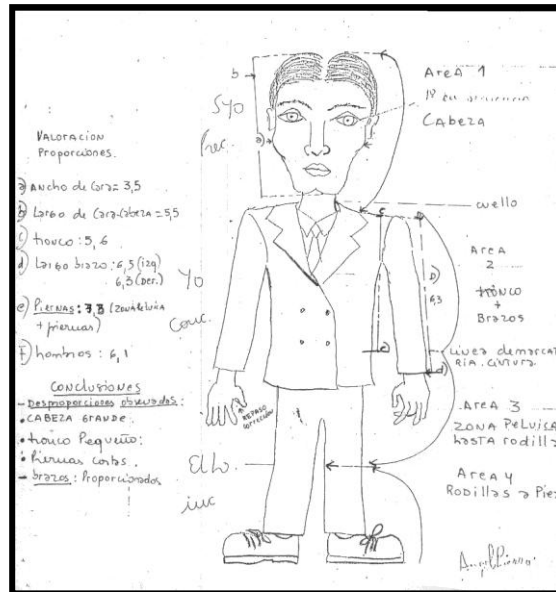 VALORACION
Proporciones.
a) ANCHO de Cara= 3,5
b) Largo de Cara-Cabeza = 5,5
c) tronco: 5,6
d) Largo brazo: 6,5 (izq)
6,3 (Der.)
e) Piernas: 7,3 (ZONA Pelvica
+ piernas)
f) hombros: 6,1
CONCLUSIONES
- Desproporciones observadas:
• CABEZA GRANDE.
• tronco Pequeño:
• Piernas cortas.
- brazos: Proporcionados
b
Syo
Prec.
a)
Yo
Conc.
Ello.
inc
REPASO
CORRECCIÓN
c
D
D)
6,3
c
d)
AreA 1
CABEZA
cuello
AREA
2
tronco
+
Brazos
Linea demarcat
RIA. Cintura.
AREA 3
ZONA PELVICA
hasta rodilla
AreA 4
RODILLAS a Pies